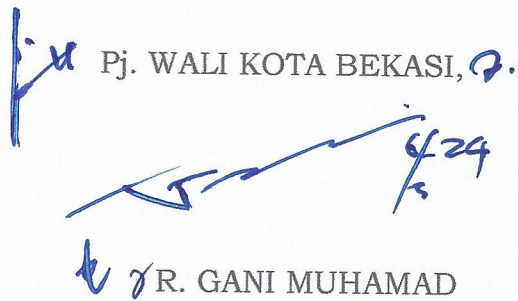 Pj. WALI KOTA BEKASI,
R. GANI MUHAMAD